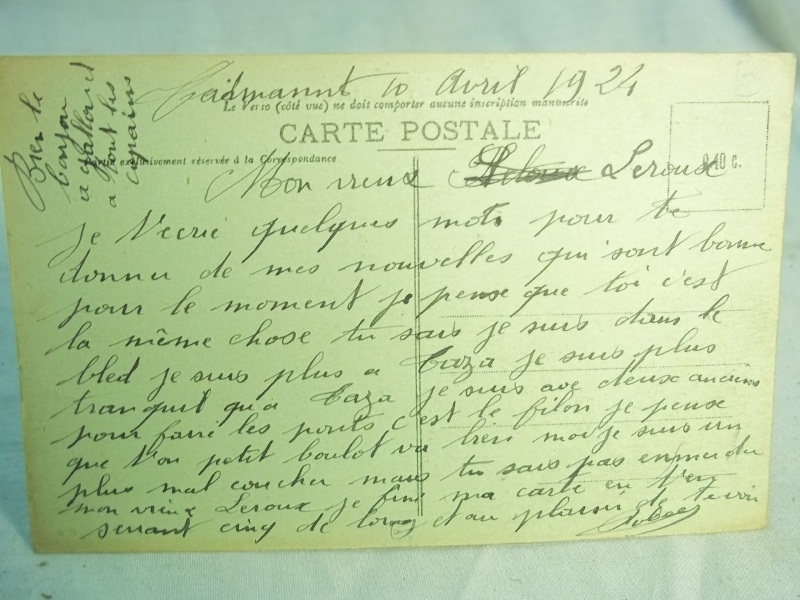 10 Avril 1924
Le Verso (côté vue) ne doit comporter aucune inscription manuscrite
CARTE POSTALE
Partie exclusivement réservée à la Correspondance
10 c.
Bien le
bonjour
a
a tout les
copains
Mon vieux Leroux
je t'ecrie quelques mots pour te
donner de mes nouvelles qui sont bonne
pour le moment je pense que toi c'est
la même chose tu sais je suis dans le
bled je suis plus a Taza je suis plus
tranquil qu'a Taza je suis avec deux anciens
pour faire les ponts c'est le filon je pense
que t'on petit boulot va bien moi je suis un
plus mal coucher mais tu sais pas enmerder
mon vieux Leroux je fini ma carte en t'en
serrant cinq de loing et au plaisir de te voir